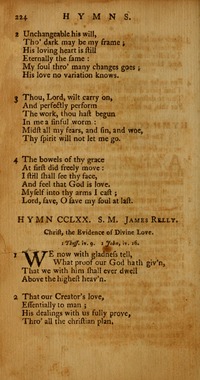 224 HYMNS.
2 Unchangeable his will,
Tho' dark may be my frame;
His loving heart is still
Eternally the same:
My soul thro' many changes goes;
His love no variation knows.
3 Thou, Lord, wilt carry on,
And perfectly perform
The work, thou hast begun
In me a sinful worm:
Midst all my fears, and sin, and woe,
Thy spirit will not let me go.
4 The bowels of thy grace
At first did freely move:
I still shall see thy face,
And feel that God is love.
Myself into thy arms I cast;
Lord, save, O save my soul at last.
HYMN CCLXX. S. M. JAMES RELLY.
Christ, the Evidence of Divine Love.
1 John, iv. 16.
1 WE now with gladness tell,
What proof our God hath giv'n,
That we with him shall ever dwell
Above the highest heav'n.
2 That our Creator's love,
Essentially to man;
His dealings with us fully prove,
Thro' all the christian plan.